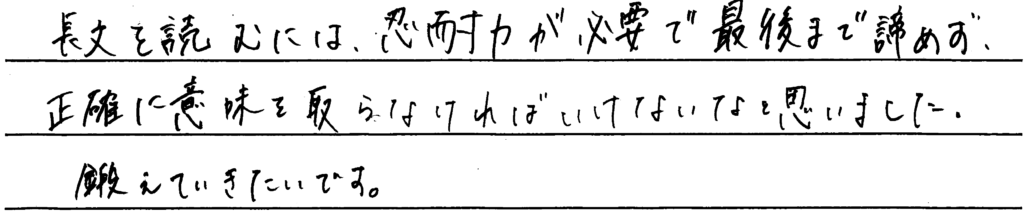 長文を読むには、忍耐力が必要で最後まで諦めず、
正確に意味を取らなければいけないなと思いました。
鍛えていきたいです。